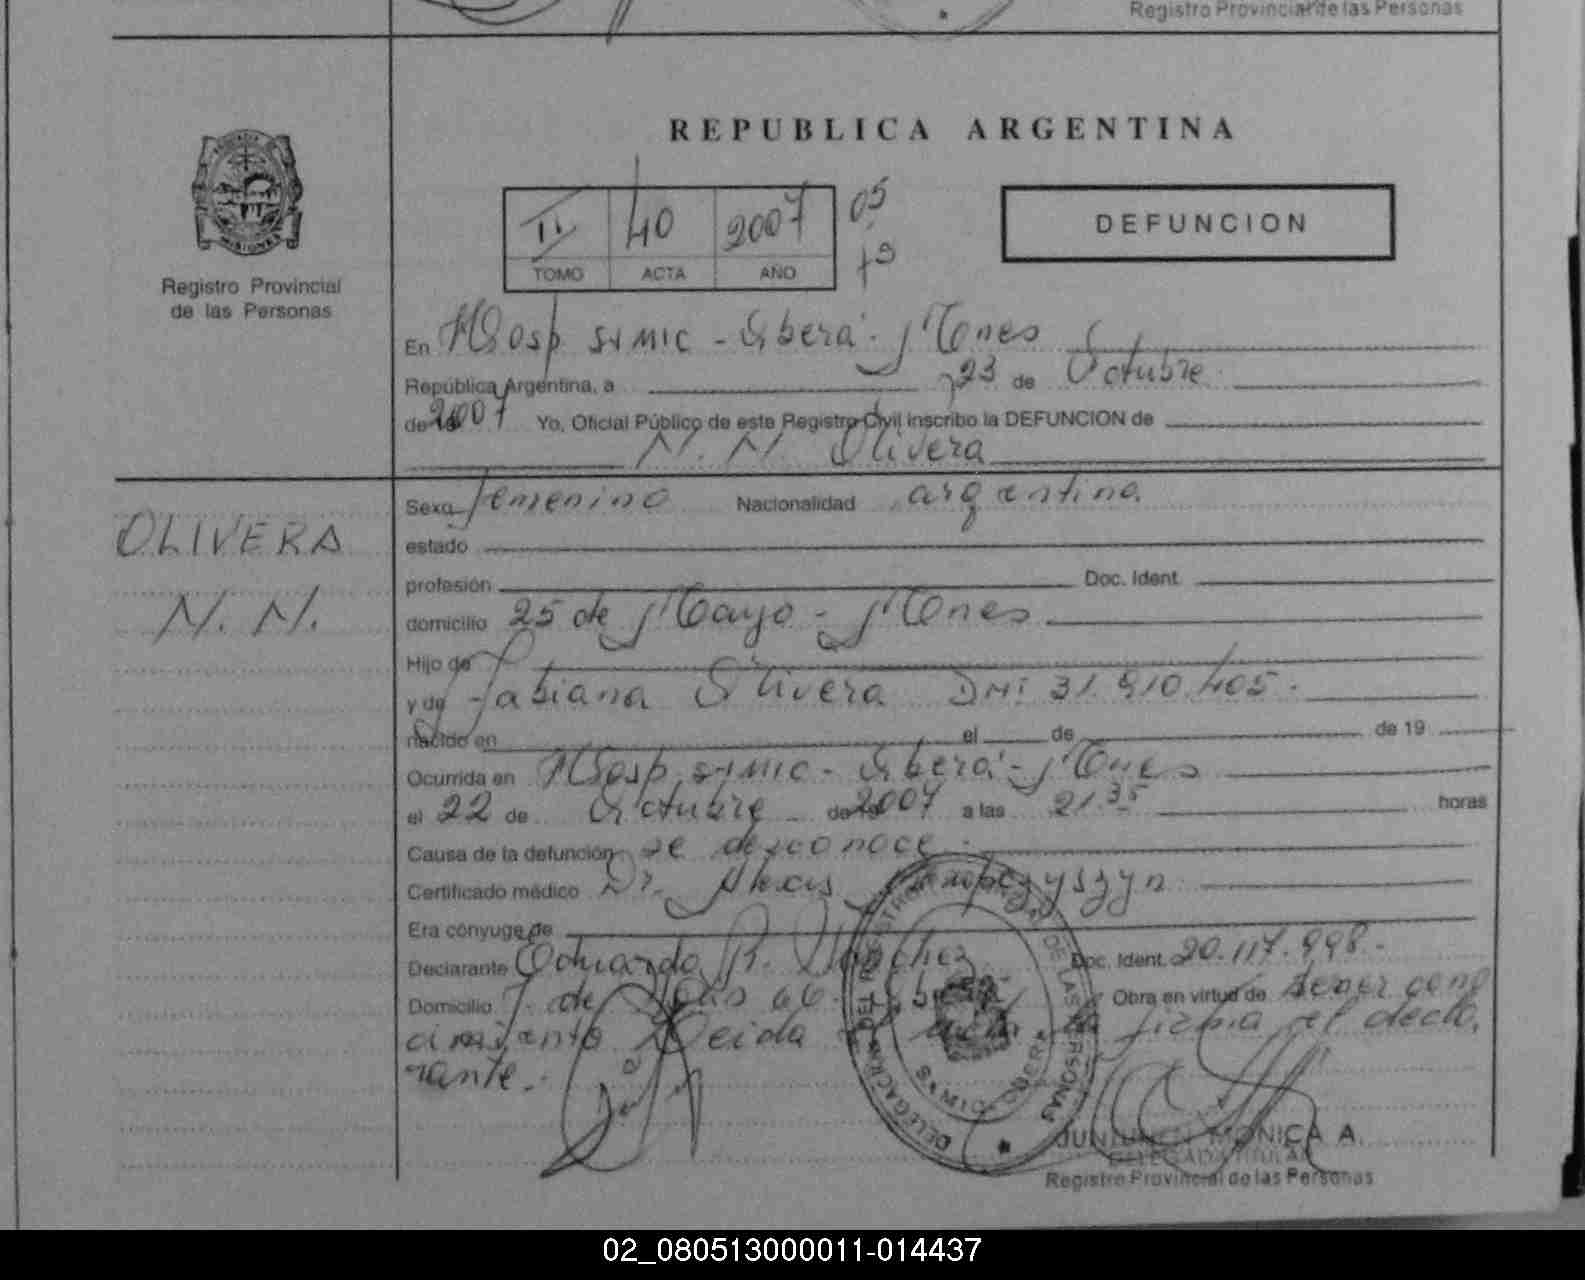 Registro Provincial de las Personas
REPUBLICA ARGENTINA
II 40 2007 05
TOMO ACTA AÑO 79
DEFUNCION
MISIONES
Registro Provincial
de las Personas
En Hosp SAMIC - Oberá - Mnes
República Argentina, a 23 de Octubre
de 2007 Yo, Oficial Público de este Registro Civil inscribo la DEFUNCION de
N. N. Olivera
OLIVERA
N. N.
Sexo femenino Nacionalidad argentina
estado
profesión Doc. Ident.
domicilio 25 de Mayo - Mnes
Hijo de
y de Fabiana Olivera DNI 31.910.405.
nacido en el de de 19
Ocurrida en Hosp. SAMIC - Oberá - Mnes
el 22 de Octubre de 2007 a las 21.35 horas
Causa de la defunción se desconoce.
Certificado médico Dr. Alexis
Era cónyuge de
Declarante Eduardo R. Doc. Ident. 20.117.998.-
Domicilio Obra en virtud de tener cono
cimiento Leida el acta la firma el decla.
rante.-
DELEGACION DEL REGISTRO DE LAS PERSONAS
MONICA A.
DELEGADA TITULAR
Registro Provincial de las Personas
02_080513000011-014437